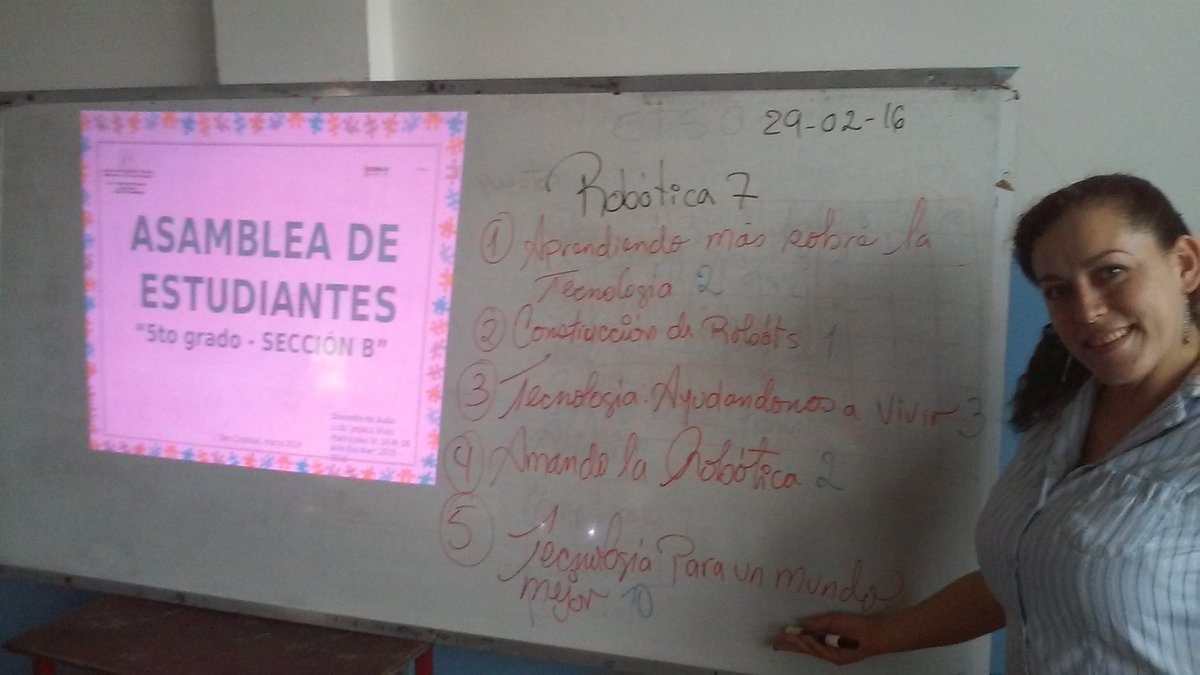 ASAMBLEA DE
ESTUDIANTES
"5to grado - SECCIÓN B"
Docente de Aula
Año Escolar: 2015
29-02-16
Robótica 7
① Aprendiendo más sobre la
Tecnologia 2
② Construcción de Robots 1
③ Tecnologia Ayudandonos a Vivir 3
④ Amando la Robótica 2
⑤ Tecnologia Para un mundo
mejor. 10